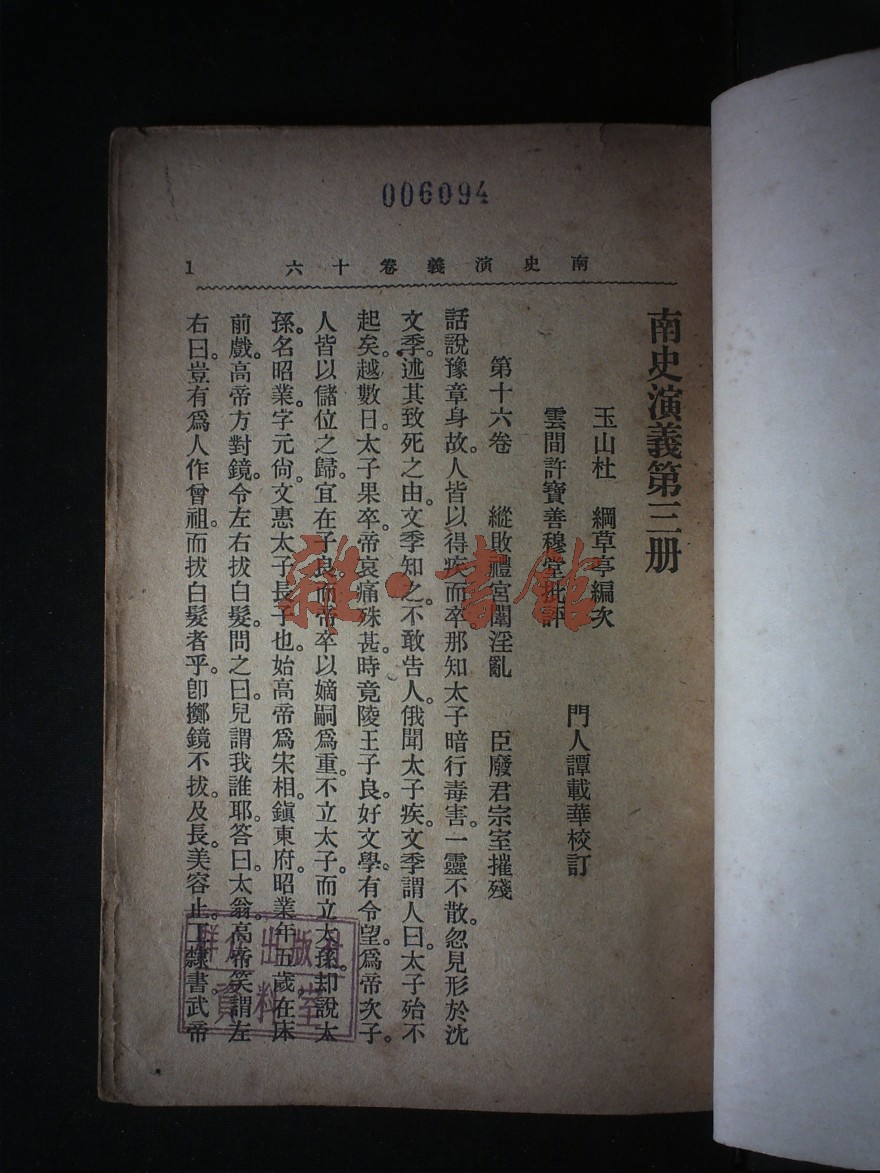 006094
南史演義卷十六
1
南史演義第三册
玉山杜　綱草亭編次
雲間許寶善穆堂批評
門人譚載華校訂
第十六卷　縱敗禮宮闈淫亂　臣廢君宗室摧殘
話說豫章身故。人皆以得疾而卒。那知太子暗行毒害。一靈不散。忽見形於沈
文季。述其致死之由。文季知之。不敢告人。俄聞太子疾。文季謂人曰。太子殆不
起矣。越數日。太子果卒。帝哀痛殊甚。時竟陵王子良。好文學。有令望。爲帝次子。
人皆以儲位之歸。宜在子良。而帝卒以嫡嗣爲重。不立太子。而立太孫。却說太
孫。名昭業。字元尙。文惠太子長子也。始高帝爲宋相。鎭東府。昭業年五歲。在床
前戲。高帝方對鏡。令左右拔白髮。問之曰。兒謂我誰耶。答曰。太翁。高帝笑謂左
右曰。豈有爲人作曾祖。而拔白髮者乎。卽擲鏡不拔。及長。美容止。工隸書。武帝
雜·書館
群众出版社
資料室